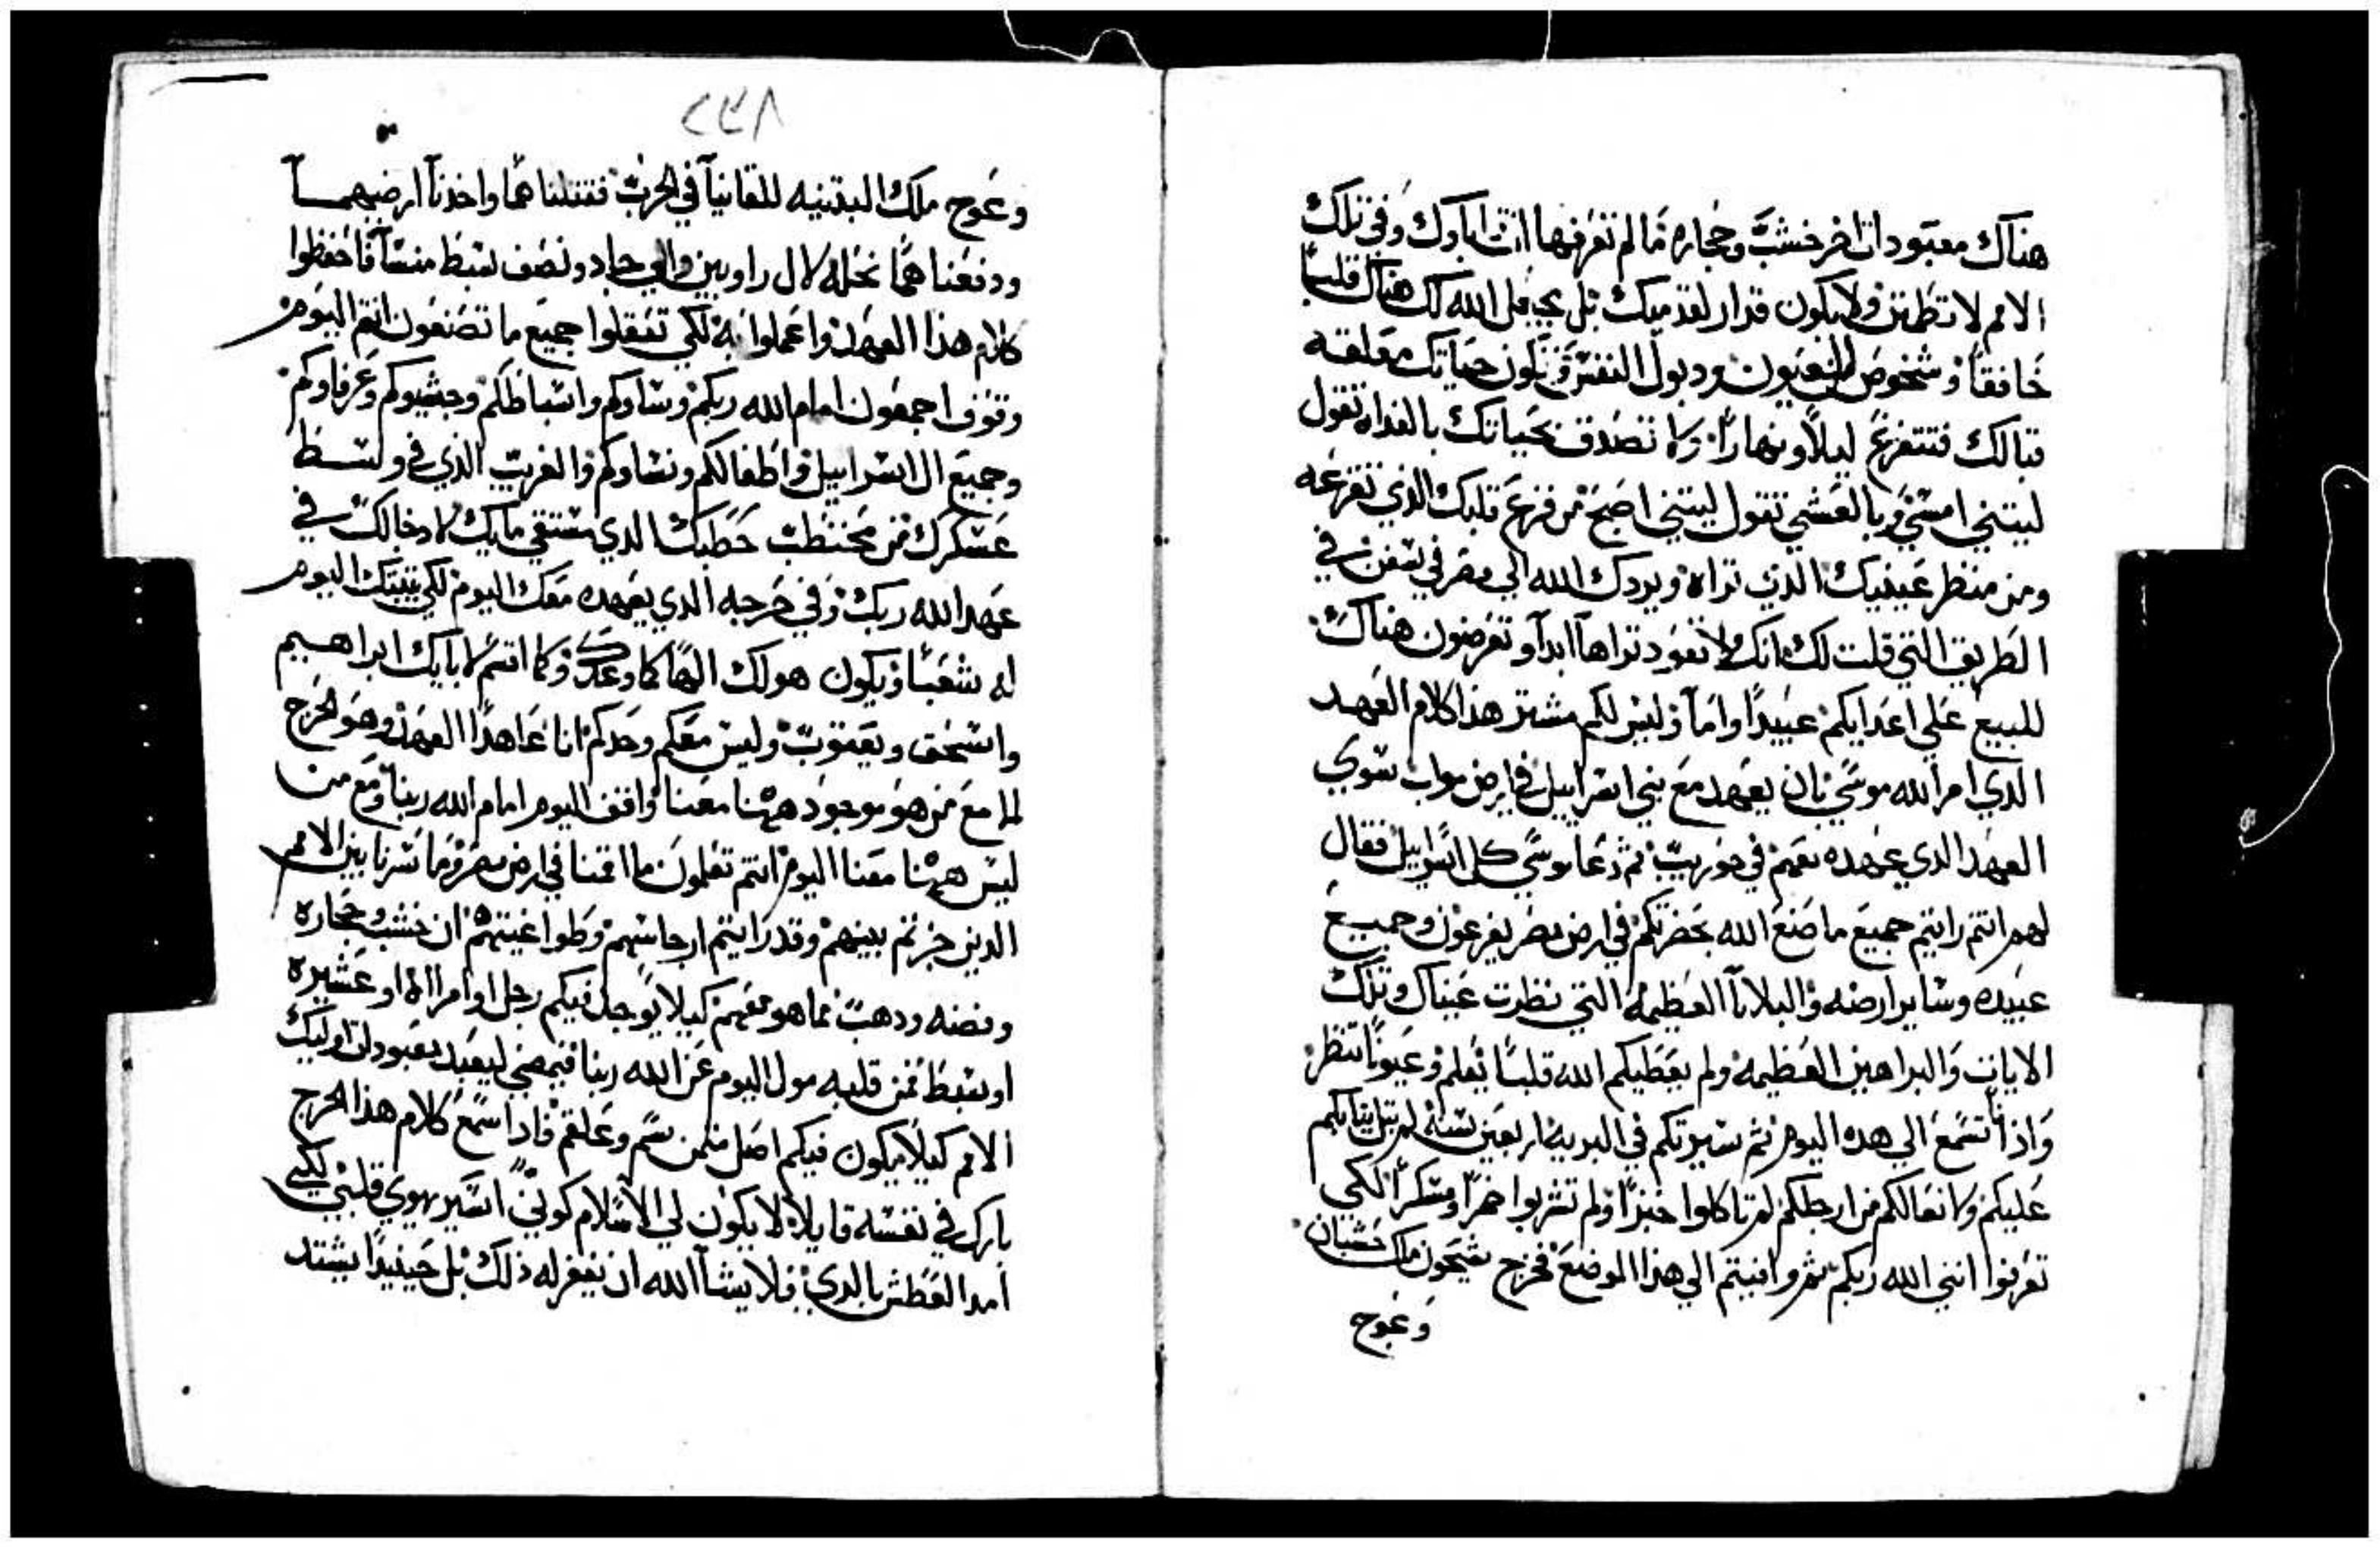 هناك معبودات اخر خشب وحجاره ما لم تعرفها انت اباوك وفي تلك
الامم لا تطمين ولا يكون قرار لقدميك بل يجعل الله لك هناك قلبا
خافقا وشخوص العيون ودبول النفس وتكون حياتك معلقه
قبالك فتتفزع ليلا ونهارا ولا تصدق بحياتك بالغداه تقول
ليتني امسي وبالعشي تقول ليتني اصبح من فزع قلبك الذي تفزعه
ومن منظر عينيك الذي تراه ويردك الله الي مصر في سفن في
الطريق التي قلت لك انك لا تعود تراها ابدا وتعرضون هناك
للبيع علي اعدايكم عبيدا واما وليس لكم مشتر هذا كلام العهد
الدي امر الله موسي بان يعهد مع بني اسراييل في ارض مواب سوي
العهد الدي عهده معهم في حوريب ثم دعا موسي كل اسراييل فقال
لهم انتم رايتم جميع ما صنع الله بحضرتكم في ارض مصر بفرعون وجميع
عبيده وساير ارضه والبلايا العظيمه التي نظرت عيناك وتلك
الايات والبراهين العظيمه ولم يعطيكم الله قلبا يعلم وعيونا تنظر
واذانا تسمع الي هده اليوم ثم سيرتكم في البريه اربعين سنه لم تبل ثيابكم
عليكم ولا نعالكم من ارجلكم لم تاكلوا خبزا ولم تشربوا خمرا ومسكرا لكي
تعرفوا انني الله ربكم ثم وافيتم الي هذا الموضع فخرج سيحون ملك حشبان
وعوج
٢٣٨
وعوج ملك البتنيه للقاينا في الحرب فقتلناهما واخدنا ارضيهما
ودفعناهما نحله لال راوبين والي جاد ونصف سبط منسا فاحفظوا
كلام هذا العهد واعملوا به لكي تعقلوا جميع ما تصنعون انتم اليوم
وقوف اجمعون امام الله ربكم وساوكم واسباطكم وجشيوكم وعرفاوكم
وجميع ال اسراييل واطفالكم ونساوكم والغريب الذي في وسط
عسكرك من محتطب حطبك الدي مستقي مايك لادخالك في
عهد الله ربك وفي حرجه الدي يعهده معك اليوم لكي يثبتك اليوم
له شعبا ويكون هو لك الها كما وعدك وكما اقسم لابايك ابراهيم
واسحق ويعقوب وليس معكم وحدكم انا عاهدا العهد وهو الحرج
الا مع من هو موجود ههنا معنا واقف اليوم امام الله ربنا ومع من
ليس ههنا معنا اليوم انتم تعلمون ما اقمنا في ارض مصر وما سرنا بين الامم
الدين جزتم بينهم وقد رايتم ارجاسهم وطواغيتهم ان خشب وحجاره
وفضه ودهب مما هو معهم كيلا يوجد فيكم رجل او امراه او عشيره
او سبط من قلبه مول اليوم عن الله ربنا فيمضي ليعبد معبودات اوليك
الامم كيلا يكون فيكم اصل منكمن سم وعلقم فادا سمع كلام هذا الحرج
بارك في نفسه قايلا لا يكون لي الا سلام كوني اسير بهوي قلبي لكي
امد العطش بالدي فلا يشا الله ان يغفر له ذلك بل حينيدا يشتد